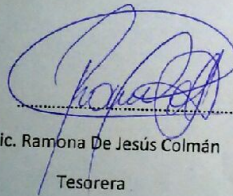 ic. Ramona De Jesús Colmán
Tesorera